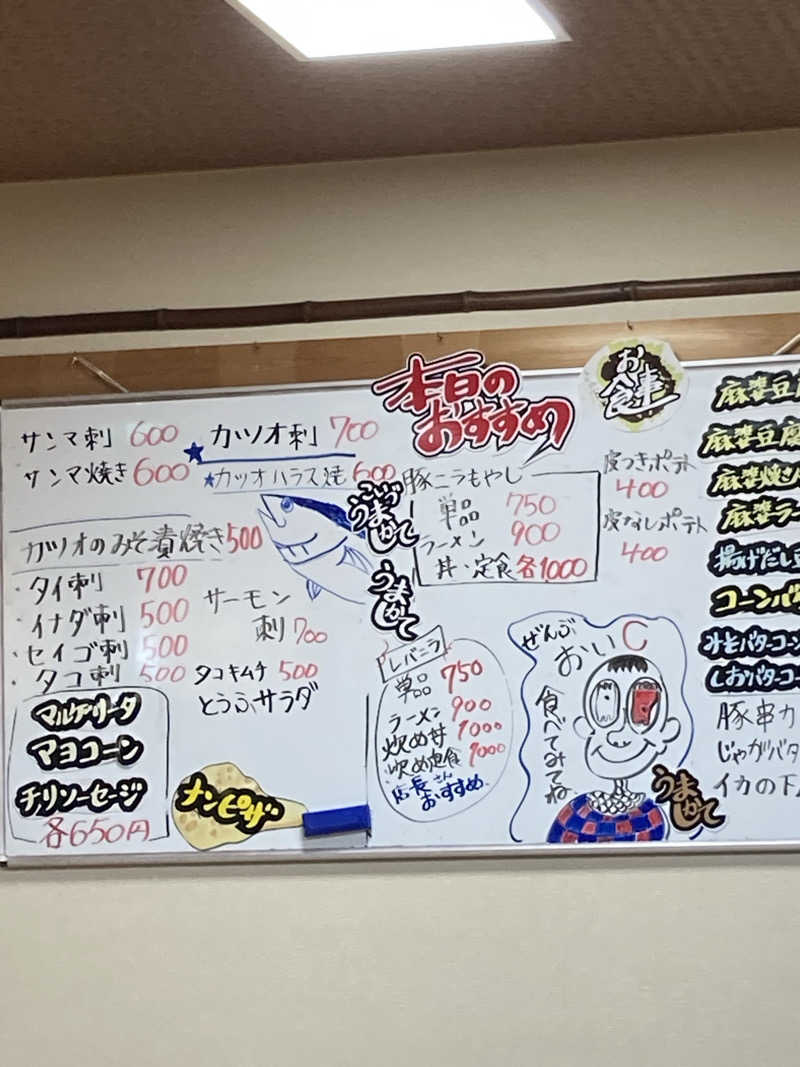 サンマ刺 600
サンマ焼き 600
★カツオ刺 700
★カツオハラス焼 600
カツオのみそ漬焼き 500
・タイ刺 700
・イナダ刺 500
・セイゴ刺 500
・タコ刺 500
サーモン
刺 700
タコキムチ 500
とうふサラダ
マルゲリータ
マヨコーン
チリソーセージ
各650円
ナンピザ
本日の
おすすめ
うまかて
うまかて
豚ニラもやし
単品 750
ラーメン 900
丼・定食 各1000
レバニラ
単品 750
ラーメン 900
炒め丼 1000
炒め定食 1000
店長さん
おすすめ
お食事
皮つきポテト
400
皮なしポテト
400
ぜんぶ
おいC
食べてみてね
うまかて
麻婆豆腐
麻婆豆腐
麻婆焼
麻婆ラー
揚げだし豆
コーンバタ
みそバターコーン
しおバターコー
豚串カ
じゃがバタ
イカの下